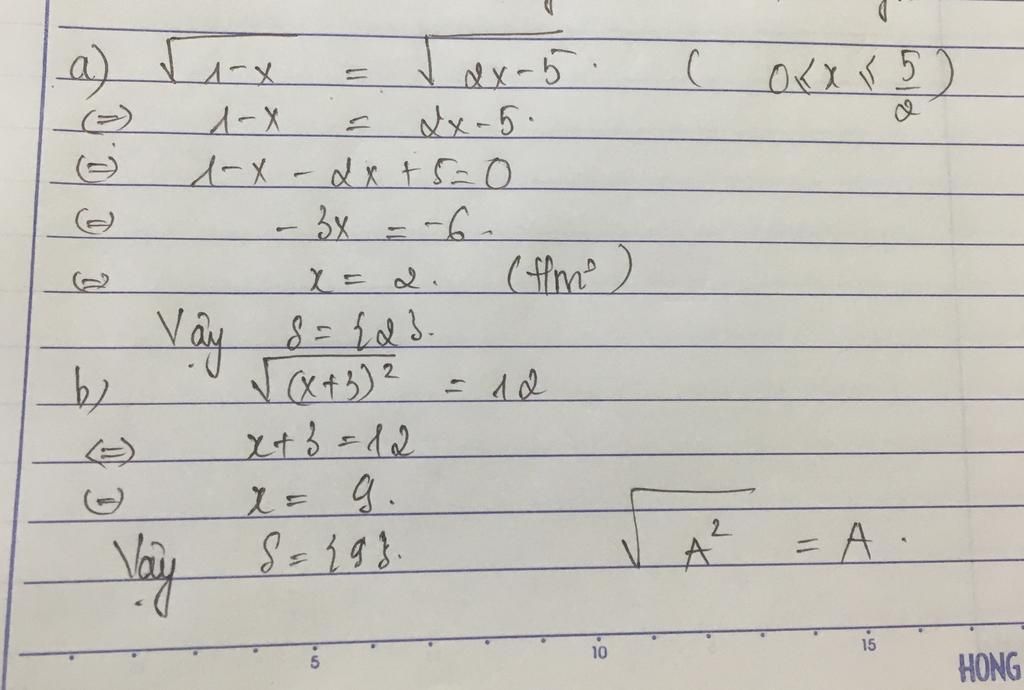 a) √(1-x) = √(2x-5). ( 0 ≤ x ≤ 5/2 )
(=) 1-x = 2x-5.
(=) 1-x - 2x + 5 = 0
(=) - 3x = -6.
(=) x = 2. (ttmđ)
Vậy S = {2}.
b) √(x+3)² = 12
<=> x+3 = 12
(=) x = 9.
Vậy S = {9}. √A² = A.
5 10 15
HONG